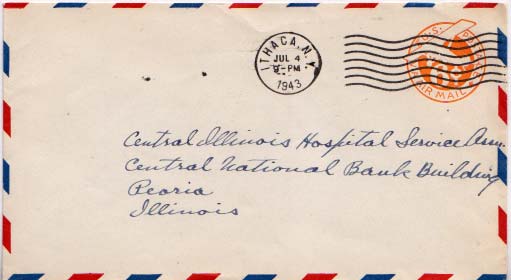 ITHACA, N.Y.
JUL 4
9-PM
1943
U.S. POSTAGE
AIR MAIL
Central Illinois Hospital Service Assn.
Central National Bank Building
Peoria
Illinois